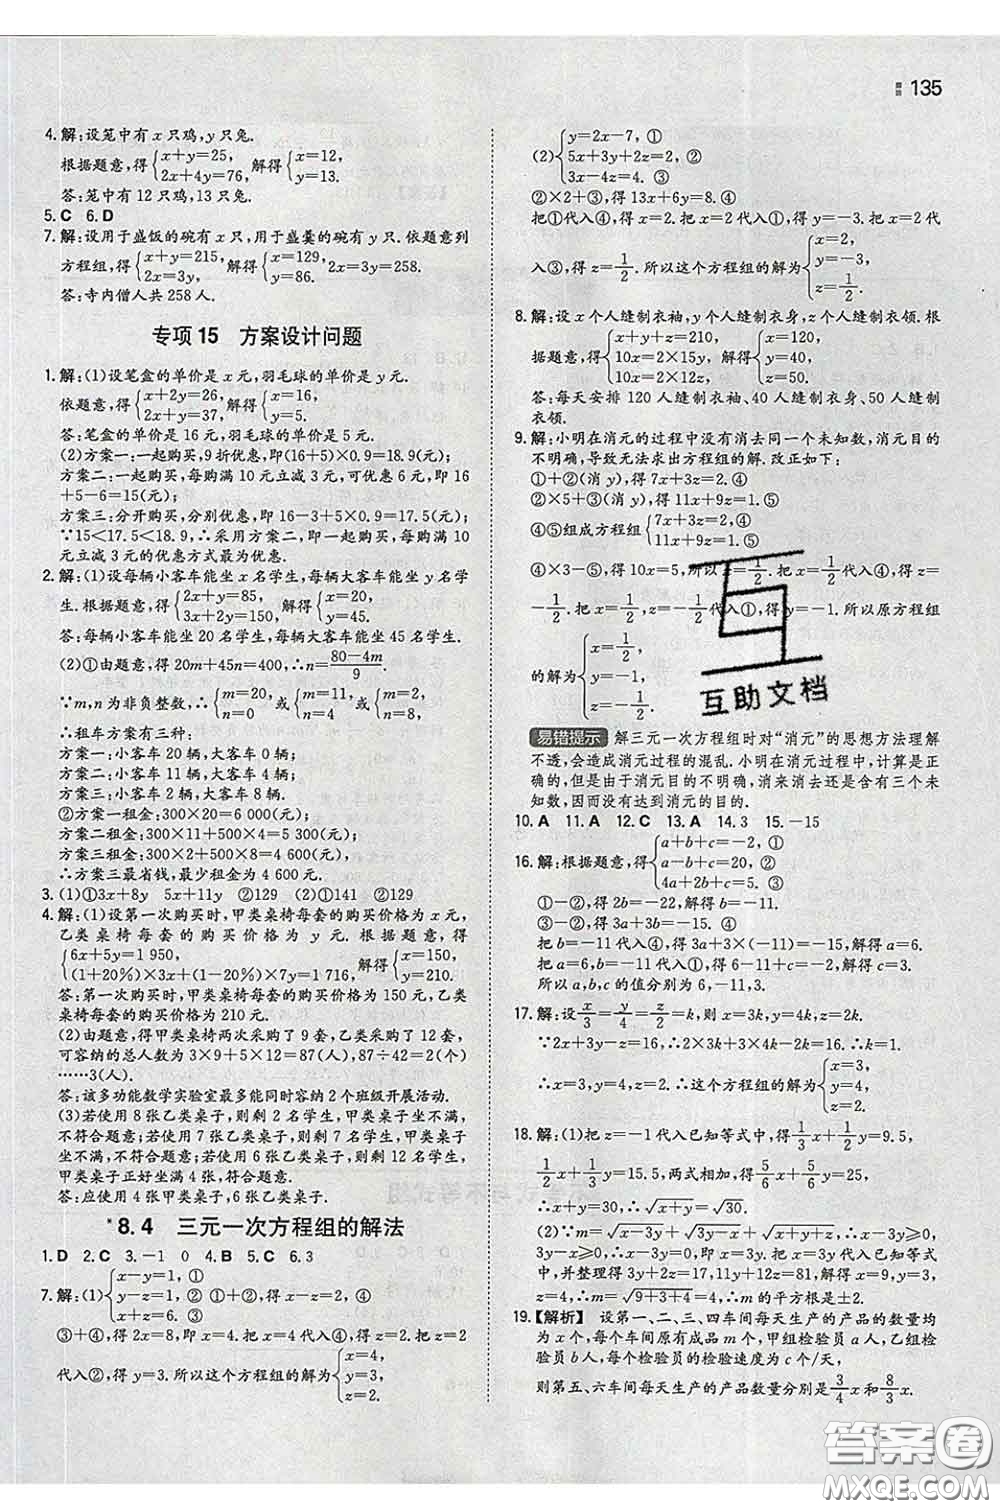 135
4. 解:设笼中有 x 只鸡,y 只兔.
根据题意,得{x+y=25, 2x+4y=76, 解得{x=12, y=13.
答:笼中有 12 只鸡,13 只兔.
5. C 6. D
7. 解:设用于盛饭的碗有 x 只,用于盛羹的碗有 y 只.依题意列
方程组,得{x+y=215, 2x=3y, 解得{x=129, y=86. 2x=3y=258.
答:寺内僧人共 258 人.
专项 15 方案设计问题
1. 解:(1)设笔盒的单价是 x 元,羽毛球的单价是 y 元.
依题意,得{x+2y=26, 2x+y=37, 解得{x=16, y=5.
答:笔盒的单价是 16 元,羽毛球的单价是 5 元.
(2)方案一:一起购买,9 折优惠,即(16+5)×0.9=18.9(元);
方案二:一起购买,每购满 10 元立减 3 元,可优惠 6 元,即 16
+5-6=15(元);
方案三:分开购买,分别优惠,即 16-3+5×0.9=17.5(元);
∵15<17.5<18.9,∴采用方案二,即一起购买,每购满 10
元立减 3 元的优惠方式最为优惠.
2. 解:(1)设每辆小客车能坐 x 名学生,每辆大客车能坐 y 名学
生.根据题意,得{2x+y=85, 3x+2y=150, 解得{x=20, y=45.
答:每辆小客车能坐 20 名学生,每辆大客车能坐 45 名学生.
(2)①由题意,得 20m+45n=400,∴n=(80-4m)/9.
∵m,n 为非负整数,∴{m=20, n=0 或{m=11, n=4 或{m=2, n=8.
∴租车方案有三种:
方案一:小客车 20 辆,大客车 0 辆;
方案二:小客车 11 辆,大客车 4 辆;
方案三:小客车 2 辆,大客车 8 辆.
②方案一租金:300×20=6 000(元);
方案二租金:300×11+500×4=5 300(元);
方案三租金:300×2+500×8=4 600(元);
∴方案三最省钱,最少租金为 4 600 元.
3. (1)①3x+8y 5x+11y ②129 (2)①141 ②129
4. 解:(1)设第一次购买时,甲类桌椅每套的购买价格为 x 元,
乙类桌椅每套的购买价格为 y 元. 根据题意,得
{6x+5y=1 950, (1+20%)×3x+(1-20%)×7y=1 716, 解得{x=150, y=210.
答:第一次购买时,甲类桌椅每套的购买价格为 150 元,乙类
桌椅每套的购买价格为 210 元.
(2)由题意,得甲类桌椅两次采购了 9 套,乙类桌椅 12 套,
可容纳的总人数为 3×9+5×12=87(人),87÷42=2(个)
……3(人).
答:该多功能数学实验室最多能同时容纳 2 个班级开展活动.
(3)若使用 8 张乙类桌子,则剩 2 名学生,甲类桌子坐不满,
不符合题意;若使用 7 张乙类桌子,则剩 7 名学生,甲类桌子
坐不满,不符合题意;若使用 6 张乙类桌子,则剩 12 名学生,
甲类桌子正好坐满 4 张,符合题意.
答:应使用 4 张甲类桌子,6 张乙类桌子.
*8.4 三元一次方程组的解法
1. D 2. C 3. -1 0 4. B 5. C 6. 3
7. 解:(1){x-y=1, ① y-z=1, ② x+z=6. ③ ①+②,得 x-z=2. ④
③+④,得 2x=8.∴x=4.把 x=4 代入④,得 z=2.把 z=2
代入②,得 y=3.所以这个方程组的解为{x=4, y=3, z=2.
(2){y=2x-7, ① 5x+3y+2z=2, ② 3x-4z=4. ③
②×2+③,得 13x+6y=8. ④
把①代入④,得 x=2.把 x=2 代入①,得 y=-3.把 x=2 代
入③,得 z=1/2.所以这个方程组的解为{x=2, y=-3, z=1/2.
8. 解:设 x 个人缝制衣袖,y 个人缝制衣身,z 个人缝制衣领.根
据题意,得{x+y+z=210, 10x=2×15y, 10x=2×12z, 解得{x=120, y=40, z=50.
答:每天安排 120 人缝制衣袖、40 人缝制衣身、50 人缝制
衣领.
9. 解:小明在消元的过程中没有消去同一个未知数,消元目的
不明确,导致无法求出方程组的解.改正如下:
①+②(消 y),得 7x+3z=2. ④
②×5+③(消 y),得 11x+9z=1. ⑤
④⑤组成方程组{7x+3z=2, ④ 11x+9z=1. ⑤
④×3-⑤,得 10x=5,所以 x=1/2.把 x=1/2代入④,得 z=
-1/2.把 x=1/2,z=-1/2代入①,得 y=-1.所以原方程组
的解为{x=1/2, y=-1, z=-1/2.
易错提示 解三元一次方程组时对“消元”的思想方法理解
不透,会造成消元过程的混乱.小明在消元过程中,计算是正
确的,但是由于消元目的不明确,消来消去还是含有三个未
知数,因而没有达到消元的目的.
10. A 11. A 12. C 13. A 14. 3 15. -15
16. 解:根据题意,得{a+b+c=-2, ① a-b+c=20, ② 4a+2b+c=-2. ③
①-②,得 2b=-22,解得 b=-11.
③-①,得 3a+b=0. ④
把 b=-11 代入④,得 3a+3×(-11)=0,解得 a=6.
把 a=6,b=-11 代入①,得 6-11+c=-2,解得 c=3.
所以 a,b,c 的值分别为 6,-11,3.
17. 解:设x/3=y/4=z/2=k,则 x=3k,y=4k,z=2k.
∵2x+3y-z=16,∴2×3k+3×4k-2k=16.∴k=1.
∴x=3,y=4,z=2.∴这个方程组的解为{x=3, y=4, z=2.
18. 解:(1)把 z=-1 代入已知等式中,得1/3x+1/2y=9.5,
1/2x+1/3y=15.5,两式相加,得5/6x+5/6y=25,
∴x+y=30,∴√(x+y)=√30.
(2)∵√(x-3y+z)=√(3y-x-z),∴x-3y+z≥0,
3y-x-z≥0,即 x-3y+z=0,即 3y=x+z,代入已知等式
中,并整理得 3y+2z=17,12y+z=81,解得 x=9,y=3,
∴m=√(9+3+4)=4.∴m 的平方根是±2.
19.【解析】 设第一、二、三、四车间每天生产的产品的数量均
为 x 个,每个车间原有成品 m 个,甲组检验员 a 人,乙组检
验员 b 人,每个检验员的检验速度为 c 个/天,
则第五、六车间每天生产的产品数量分别是3/4x和8/3x.
互助文档
答案圈
MXQE.COM